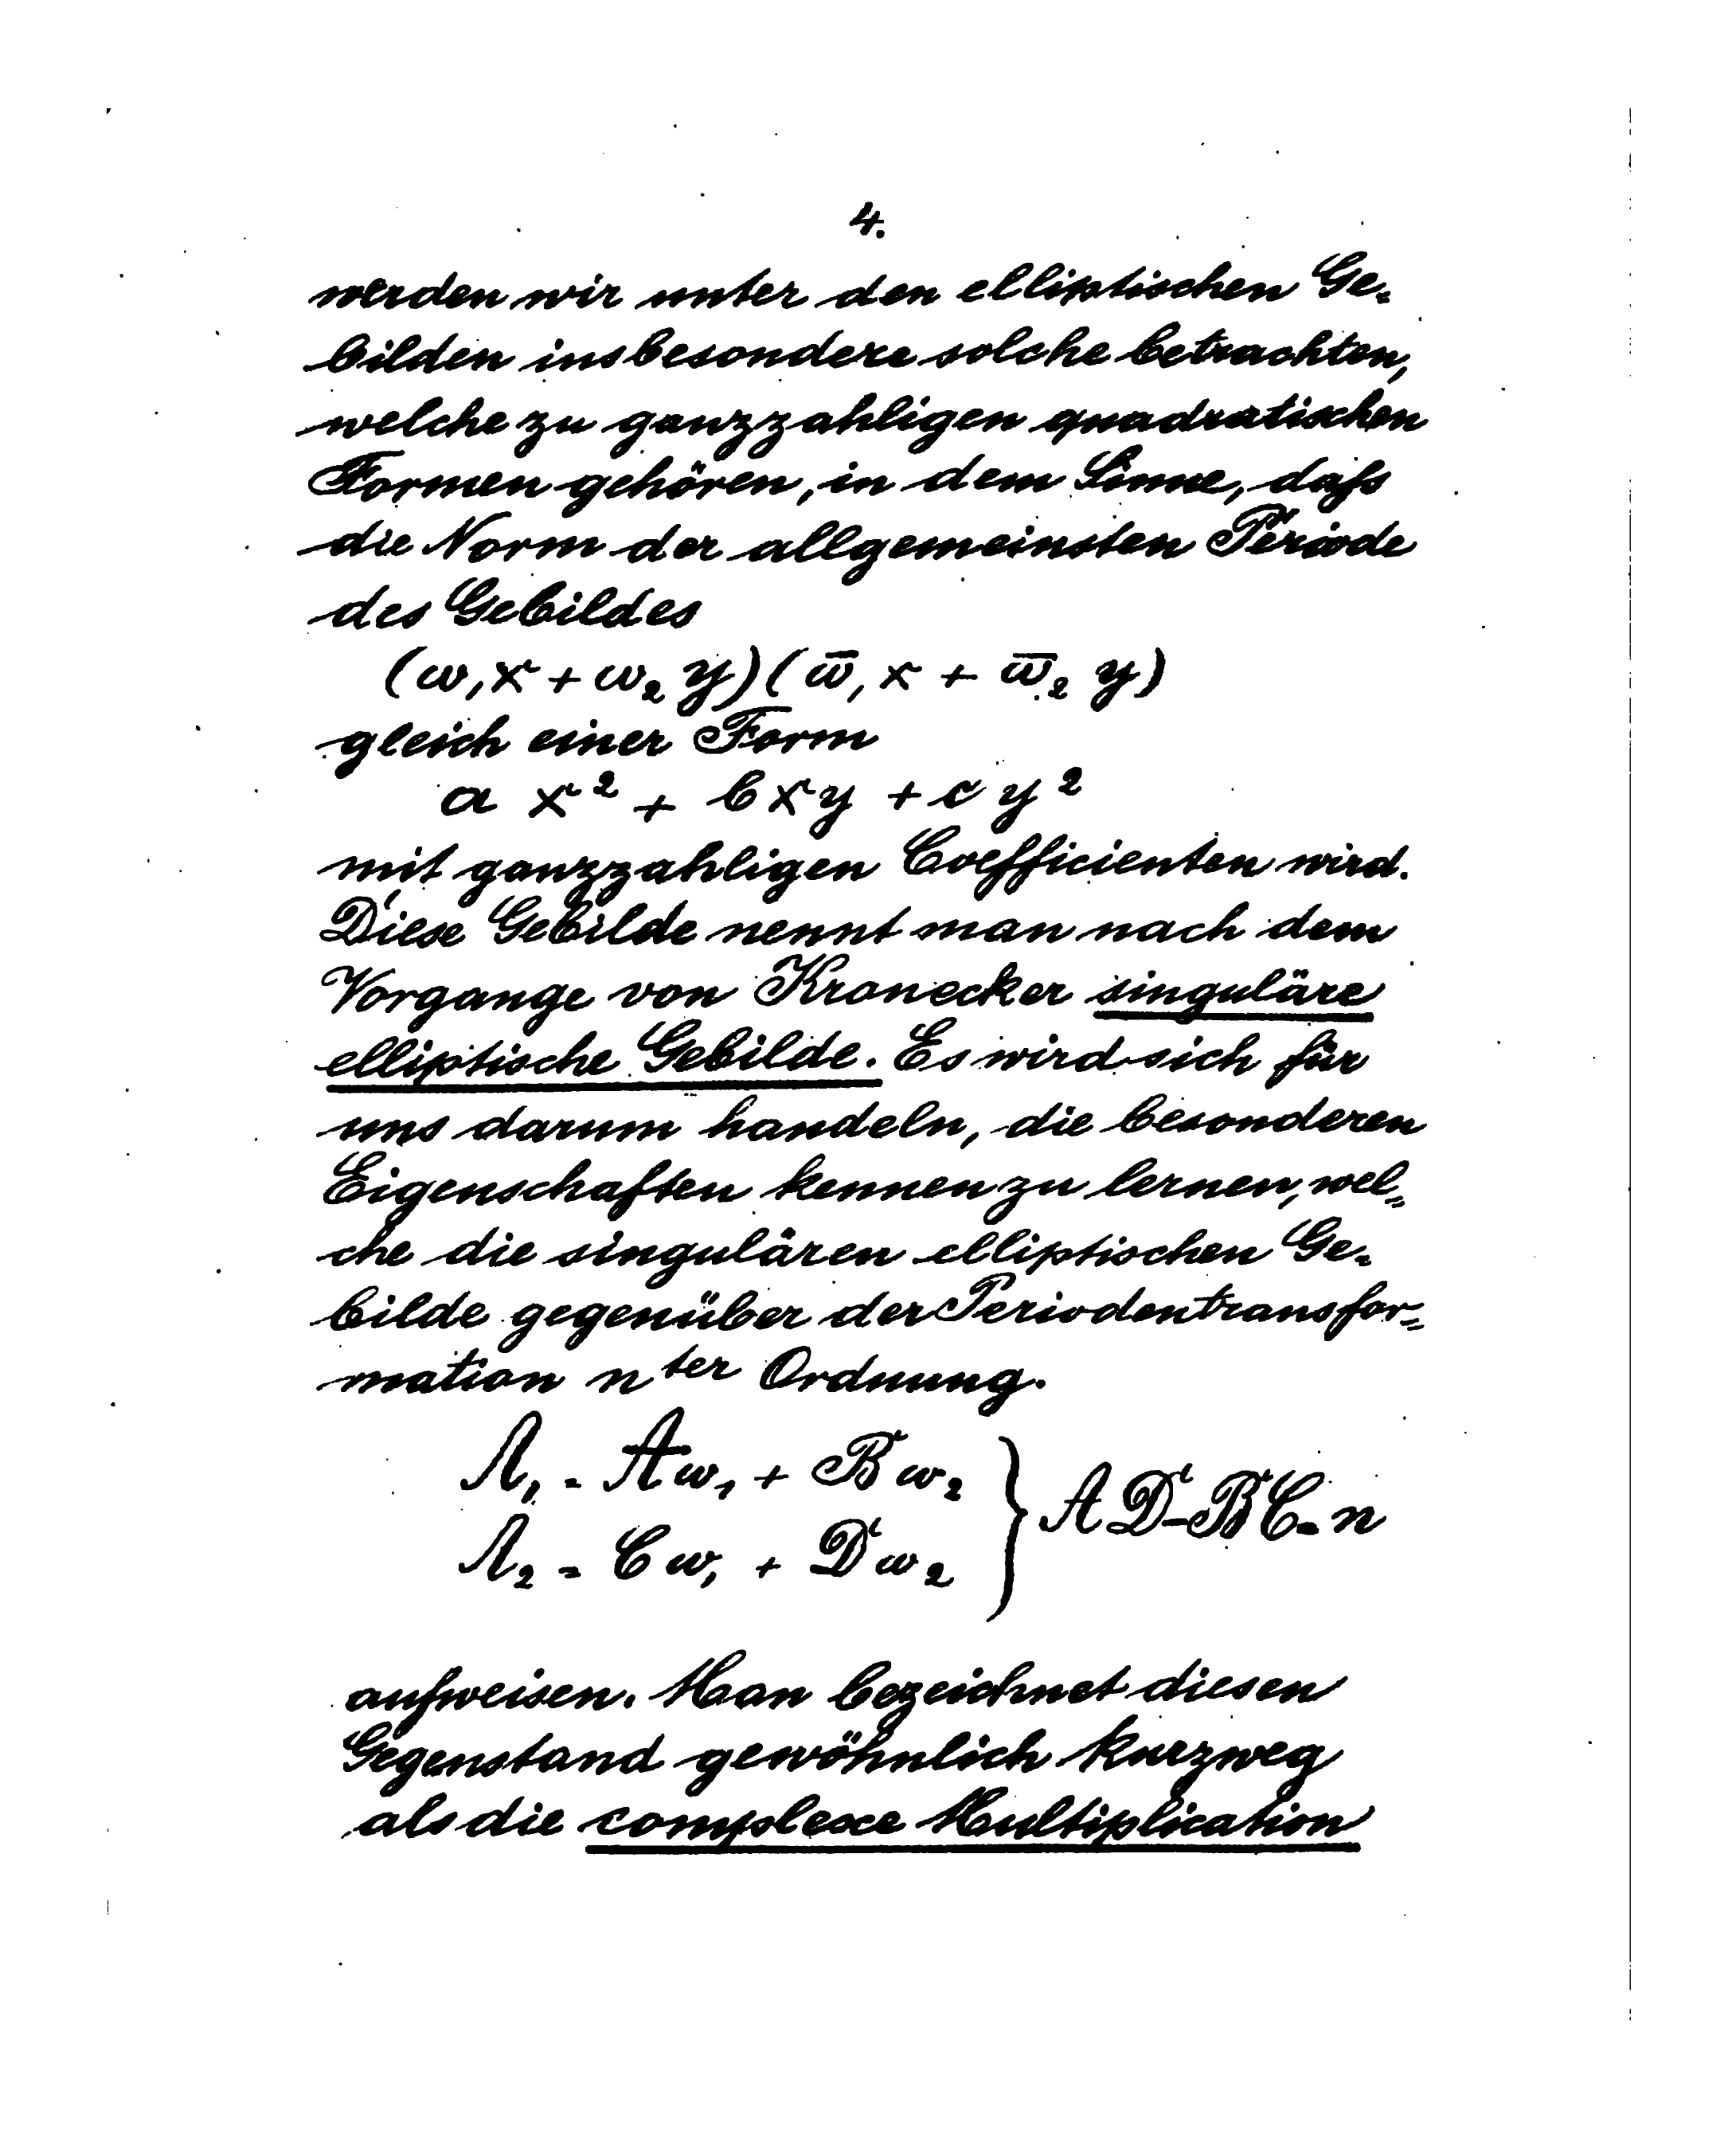 4.
werden wir unter den elliptischen Ge-
bilden insbesondere solche betrachten,
welche zu ganzzahligen quadratischen
Formen gehören, in dem Sinne, daß
die Norm der allgemeinsten Periode
des Gebildes
(ω₁x + ω₂ y)(ω̄₁ x + ω̄₂ y)
gleich einer Form
a x² + b x y + c y²
mit ganzzahligen Coefficienten wird.
Diese Gebilde nennt man nach dem
Vorgange von Kronecker singuläre
elliptische Gebilde. Es wird sich für
uns darum handeln, die besonderen
Eigenschaften kennen zu lernen, wel-
che die singulären elliptischen Ge-
bilde gegenüber der Periodentransfor-
mation nter Ordnung.
Λ₁ = Aω₁ + Bω₂
Λ₂ = Cω₁ + Dω₂ } AD-BC=n
aufweisen. Man bezeichnet diesen
Gegenstand gewöhnlich kurzweg
als die complexe Multiplication